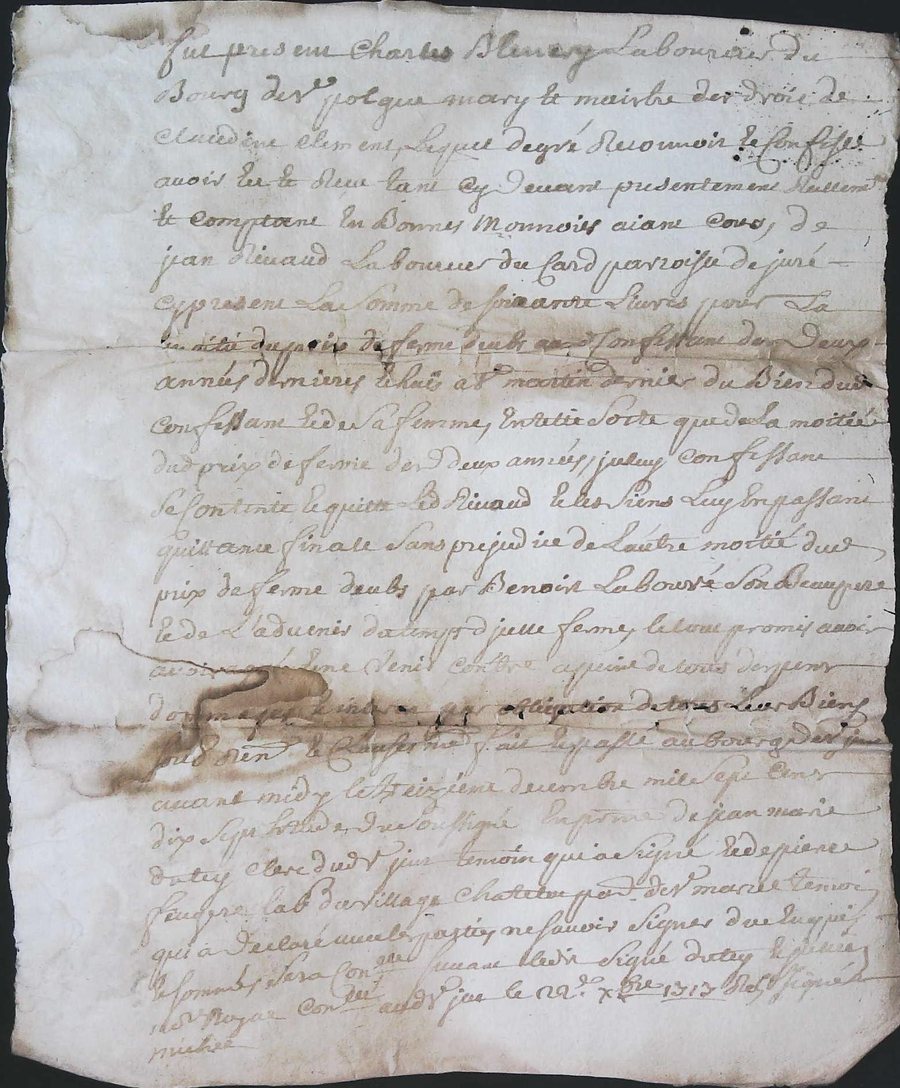 fut present Charles Blettery Laboureur du
Bourg de St polgue mary et maistre des drois de
Claudine Clement, Lequel de gré Reconnoit et Confesse
avoir eu et Receu tant cy devant presentement Reellemt
et comptant en Bonnes Monnoies aiant cours, de
jean Rivaud Laboureur du Card parroisse de juré
cy present La somme de soixante Livres pour La
moitié du prix de ferme deubs aud Confessant des deux
années dernieres echuës a St martin dernier du Bien dud
confessant et de Sa femme, en telle Sorte que de La moitiée
dud prix de ferme desd deux années, jcelluy confessant
se contente et quitte Led Rivaud et les Siens Luy En passant
quittance finale Sans prejudice de Lautre moitié dud
prix de ferme deubs par Benoist Labouré Son Beaupere
et de L'advenir du temps d'jcelle ferme, le tout promis avoir
a gré et ne venir contre a peine de tous despens
dommages et interets par obligation de tous Leurs Biens
et Clauses fait et passé au bourg de St jus
avant midy le treizieme decembre mil Sept Cens
dix Sept du Soussigné En pnce de jean marie
dutey clerc dud St jus temoin qui a Signé et de pierre
feugere lab du village Chatelus par de St marcel temoin
qui a declaré avec les parties ne savoir Signer de ce Enquis
et sommés, Sera Con suivant ledit Signé dutey et
nore Royal Conlé aud St jus le 22e xbre 1717 Signé
michel